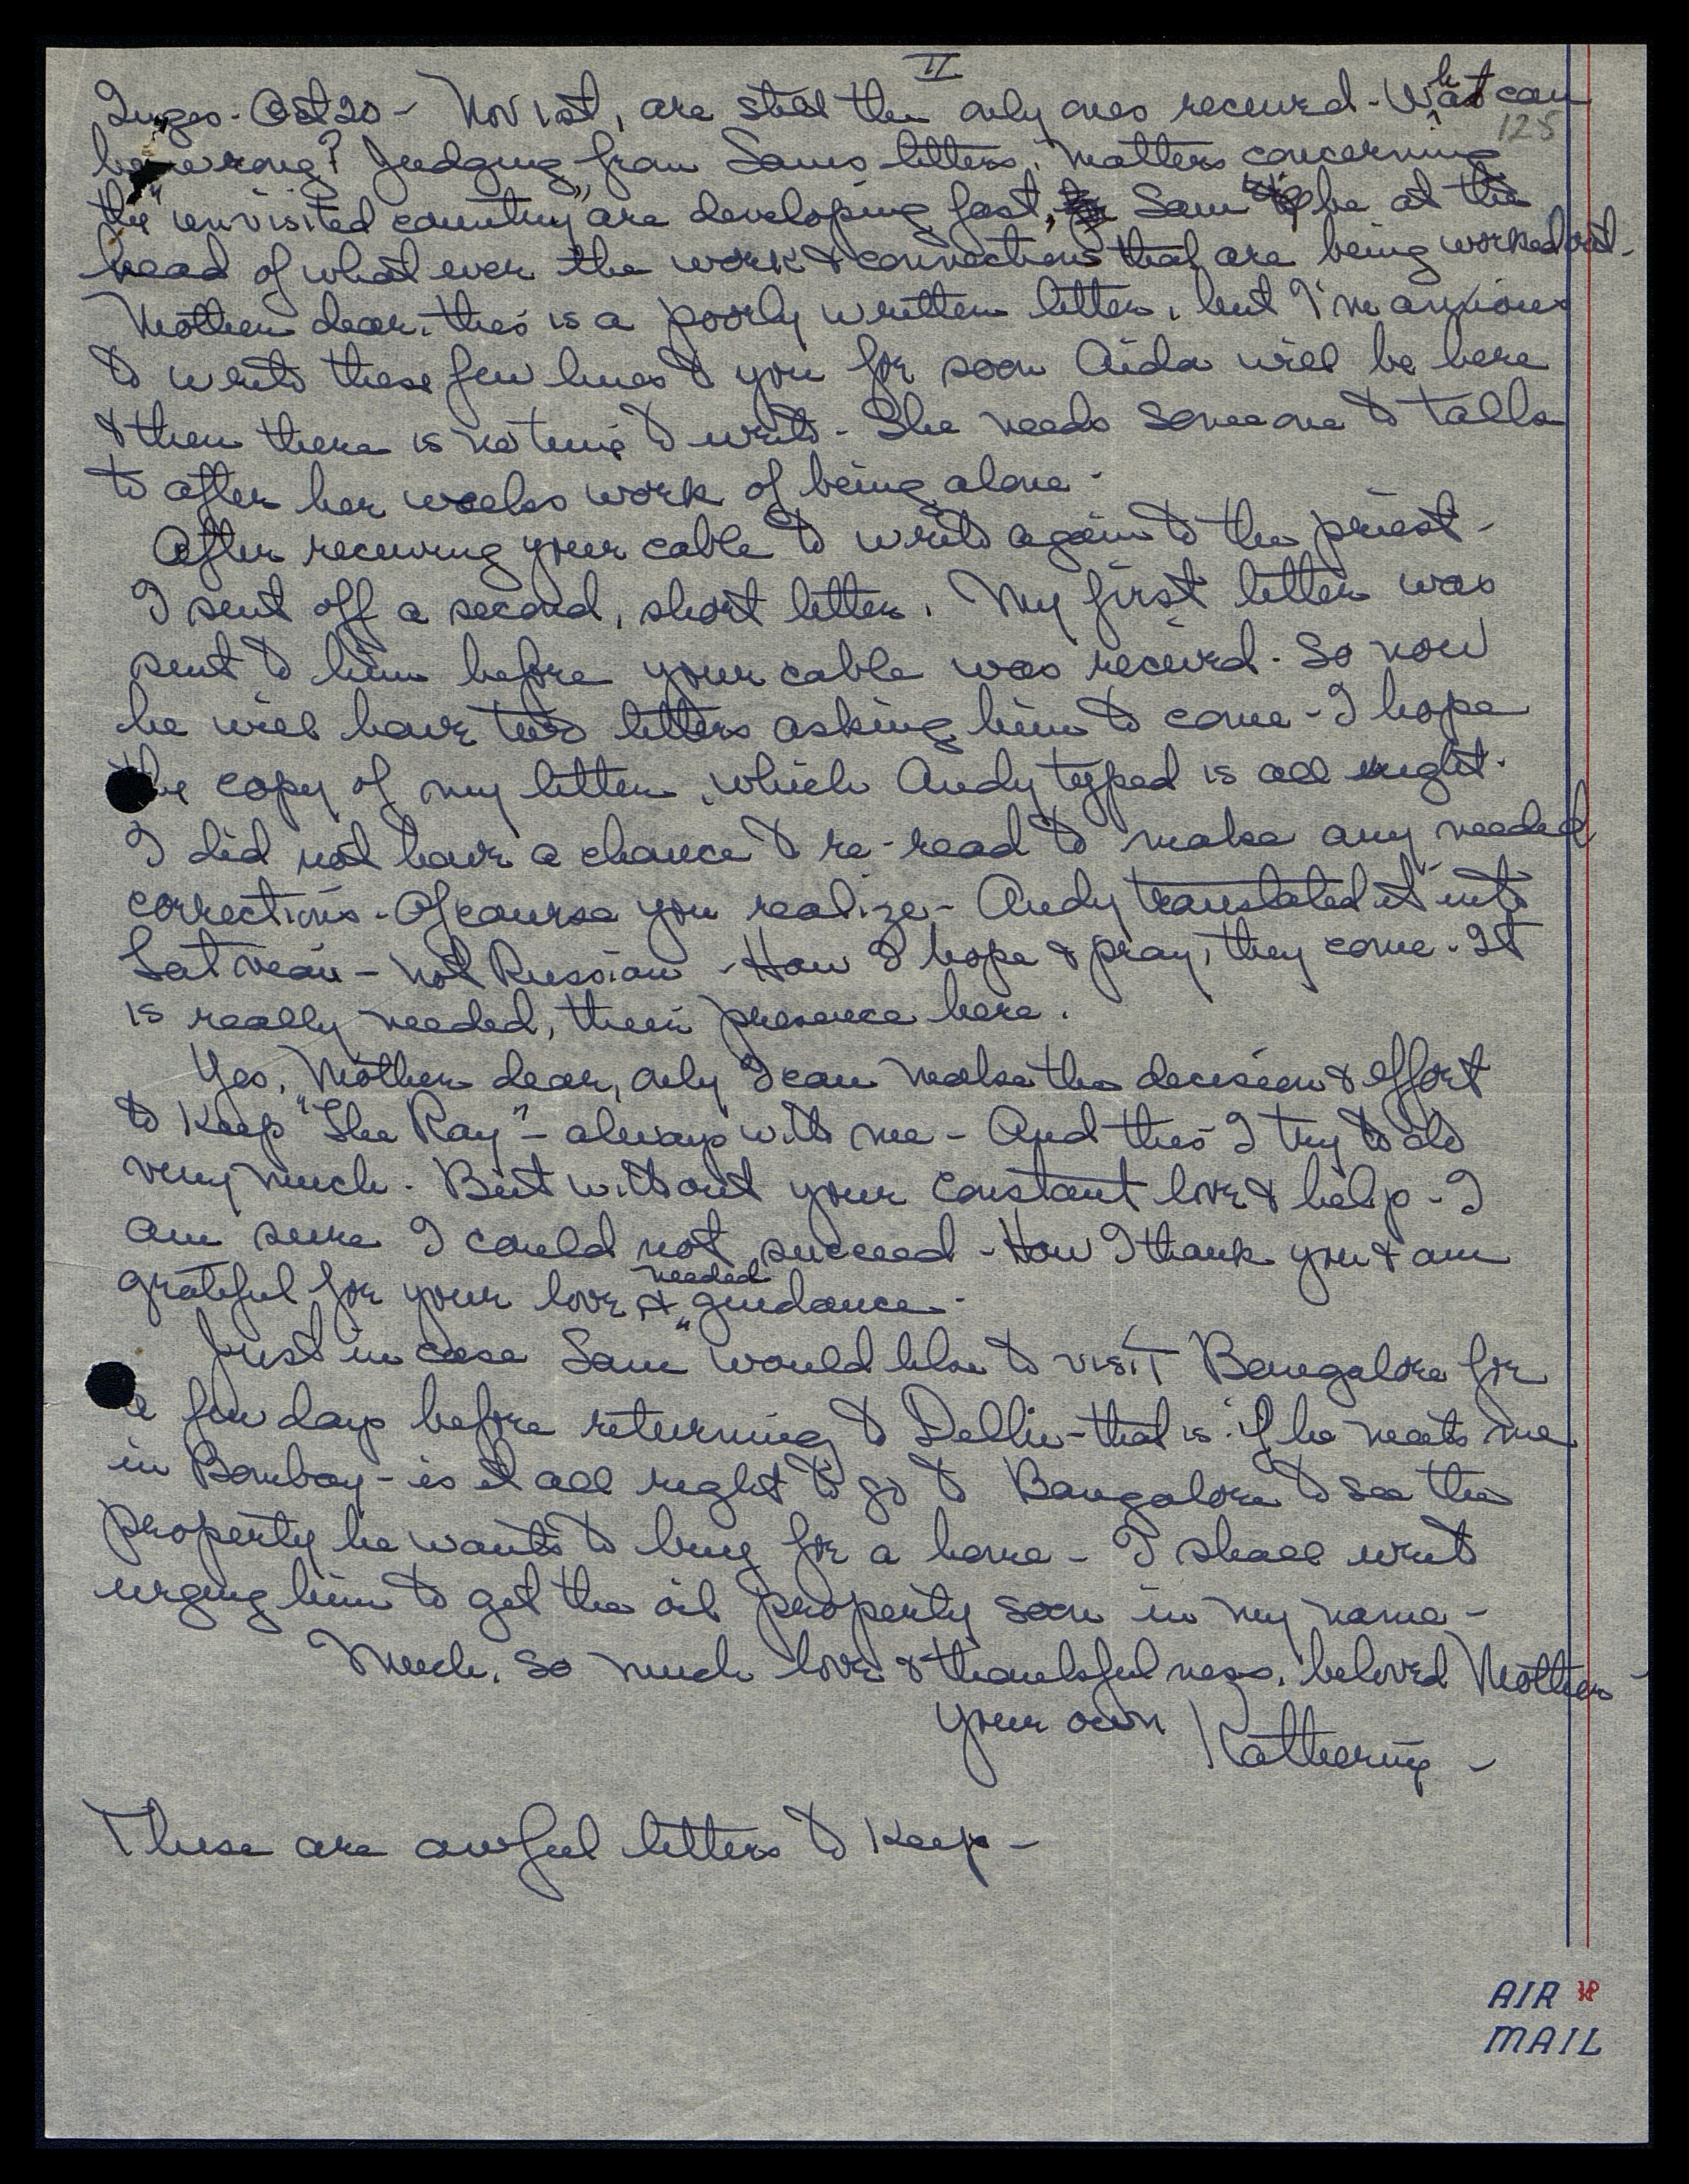 II
Inges - Oct 20 - Nov 1st, are still the only ones received - What can
125
be wrong? Judging from Sams letters, matters concerning
the "unvisited country" are developing fast, Sam to be at the
head of what ever the work & connections that are being worked out.
Mother dear, this is a poorly written letter, but I'm anxious
to write these few lines to you for soon Aida will be here
& then there is no time to write - She needs someone to talk
to after her weeks work of being alone -
After receiving your cable to write again to the priest -
I sent off a second, short letter. My first letter was
sent to him before your cable was received. So now
he will have two letters asking him to come - I hope
the copy of my letter, which Andy typed is all right.
I did not have a chance to re-read to make any needed
corrections - Of course you realize - Andy translated it into
Latvian - not Russian - How I hope & pray, they come - It
is really needed, their presence here.
Yes, Mother dear, only I can make the decision & effort
to keep "The Ray" - always with me - And this I try to do
very much. But without your constant love & help - I
am sure I could not succeed - How I thank you & am
grateful for your love & needed guidance -
Just in case Sam would like to visit Bangalore for
a few days before returning to Delhi - that is if he meets me
in Bombay - is it all right to go to Bangalore to see the
property he wants to buy for a home - I shall write
urging him to get the oil property soon in my name -
Much, so much love & thankfulness, beloved Mother -
Your own Katherine -
These are awful letters to keep -
AIR
MAIL